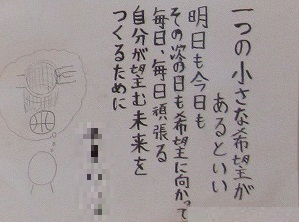 一つの小さな希望が
あるといい
明日も今日も
その次の日も希望に向かって
毎日、毎日頑張る
自分が望む未来を
つくるために